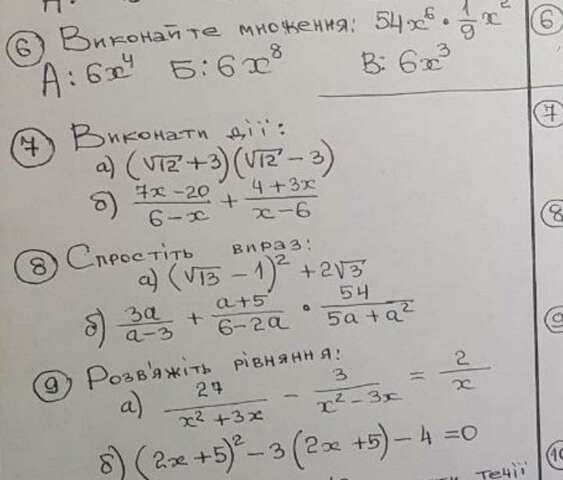 ⑥ Виконайте множення: 54x⁶ · 1/9 x²
А: 6x⁴ Б: 6x⁸ В: 6x³
⑦ Виконати дії:
а) (√12 + 3)(√12 − 3)
б) (7x − 20)/(6 − x) + (4 + 3x)/(x − 6)
⑧ Спростіть вираз:
а) (√13 − 1)² + 2√3
б) 3a/(a − 3) + (a + 5)/(6 − 2a) · 54/(5a + a²)
⑨ Розв'яжіть рівняння:
а) 27/(x² + 3x) − 3/(x² − 3x) = 2/x
б) (2x + 5)² − 3(2x + 5) − 4 = 0
течії
⑥
⑦
⑧
⑨